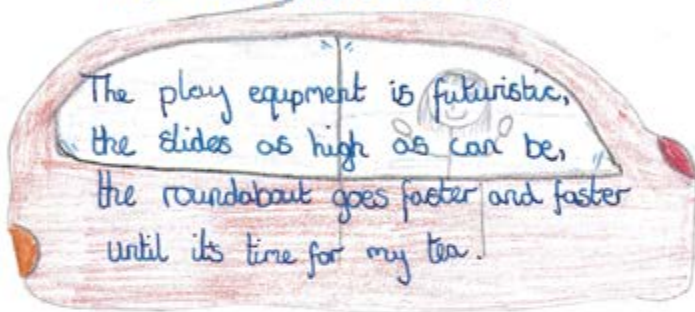 The play equpment is futuristic,
the slides as high as can be,
the roundabout goes faster and faster
until it's time for my tea.